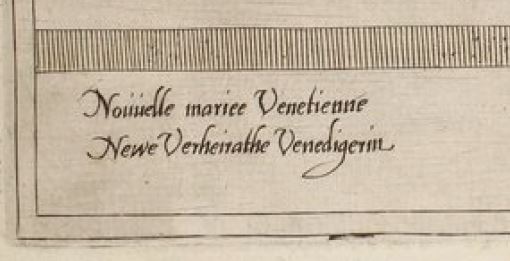 Nouuelle mariee Venetienne
Newe Verheirathe Venedigerin